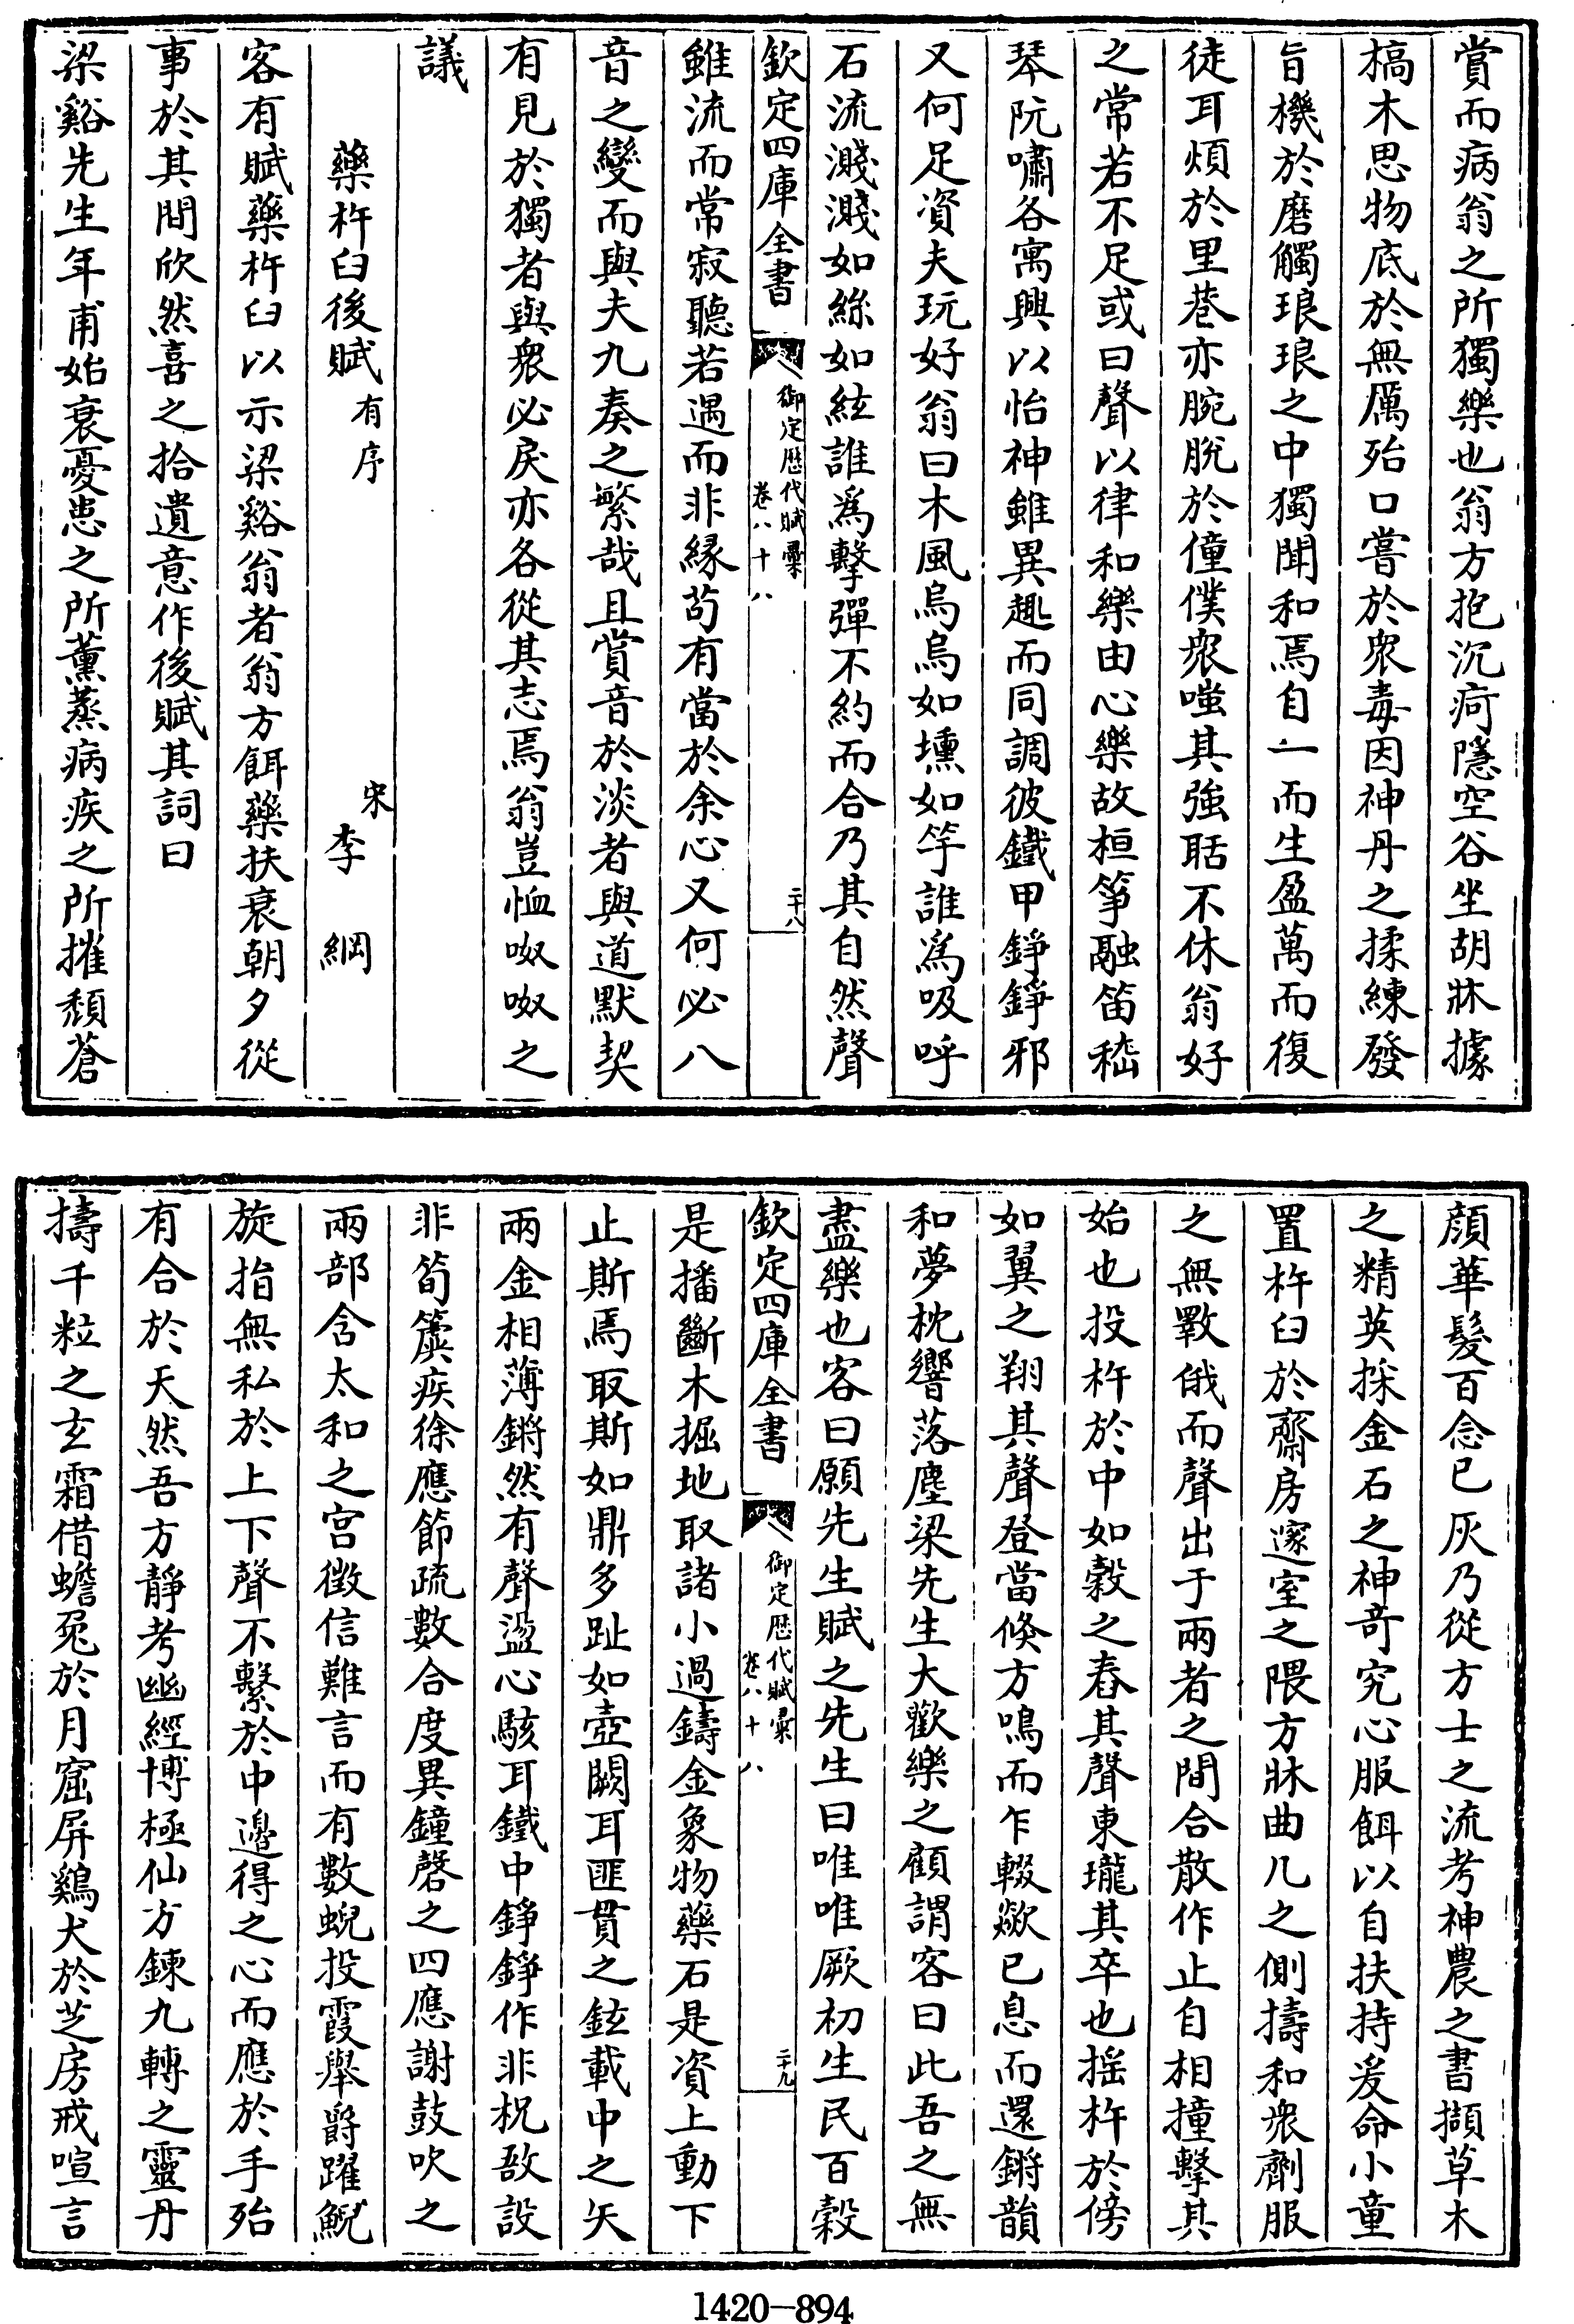 賞而病翁之所獨樂也翁方抱沉疴隱空谷坐胡牀據
槁木思物底於無厲殆口嘗於衆毒因神丹之揉練發
旨機於磨觸琅琅之中獨聞和焉自一而生盈萬而復
徒耳煩於里巷亦腕脫於僮僕衆嗤其強聒不休翁好
之常若不足或曰聲以律和樂由心樂故桓箏融笛嵇
琴阮嘯各寓興以怡神雖異趣而同調彼鐵甲錚錚邪
又何足資夫玩好翁曰木風烏烏如壎如竽誰為吸呼
石流濺濺如絲如絃誰為擊彈不約而合乃其自然聲
欽定四庫全書
御定歷代賦彙
卷八十八
二十八
雖流而常寂聽若遇而非緣苟有當於余心又何必八
音之變而與夫九奏之繁哉且賞音於淡者與道默契
有見於獨者與衆必戾亦各從其志焉翁豈恤呶呶之
議
藥杵臼後賦有序
宋李綱
客有賦藥杵臼以示梁谿翁者翁方餌藥扶衰朝夕從
事於其間欣然喜之拾遺意作後賦其詞曰
梁谿先生年甫始衰憂患之所薰蒸病疾之所摧頹蒼
顏華髮百念已灰乃從方士之流考神農之書擷草木
之精英採金石之神奇究心服餌以自扶持爰命小童
置杵臼於齋房邃室之隈方牀曲几之側擣和衆劑服
之無斁俄而聲出于兩者之間合散作止自相撞擊其
始也投杵於中如穀之舂其聲東瓏其卒也搖杵於傍
如翼之翔其聲登當倏方鳴而乍輟欻已息而還鏘韻
和夢枕響落塵梁先生大歡樂之顧謂客曰此吾之無
盡樂也客曰願先生賦之先生曰唯唯厥初生民百穀
欽定四庫全書
御定歷代賦彙
卷八十八
二十九
是播斷木掘地取諸小過鑄金象物藥石是資上動下
止斯焉取斯如鼎多趾如壺闕耳匪貫之鉉載中之矢
兩金相薄鏘然有聲盪心駭耳鐵中錚錚作非柷敔設
非筍簴疾徐應節疏數合度異鐘磬之四應謝鼓吹之
兩部含太和之宫徵信難言而有數蜺投霞舉爵躍鯢
旋指無私於上下聲不繫於中邊得之心而應於手殆
有合於天然吾方靜考幽經博極仙方鍊九轉之靈丹
擣千粒之玄霜借蟾兔於月窟屏鷄犬於芝房戒喧言
1420-894